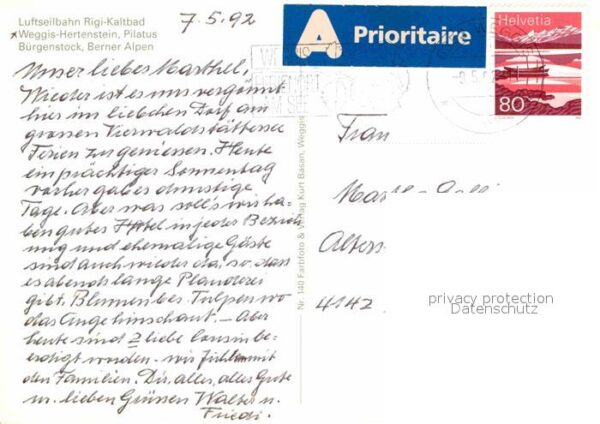 Luftseilbahn Rigi-Kaltbad
Weggis-Hertenstein, Pilatus
Bürgenstock, Berner Alpen
7.5.92
A Prioritaire
Helvetia
80
Unser liebes Marthel,
Wieder ist es uns vergönnt
hier im lieblichen Dorf am
grossen Vierwaldstättersee
Ferien zu geniessen. Heute
ein prächtiger Sonnentag
vorher gab es dunstige
Tage. Aber was soll's wir ha-
ben gutes Hotel in jeder Bezieh
ung und ehemalige Gäste
sind auch wieder da, so, dass
es abends lange Plauderei
gibt. Blumen bes. Tulpen wo
das Auge hinschaut. – Aber
heute sind 2 liebe
erdigt worden. wir fühlen mit
den Familien. Dir, alles, alles Gute
u. lieben Grüssen Walter u.
Friedi.
Nr. 140 Farbfoto & Verlag Kurt Basan, Weggis
Frau
4142
privacy protection
Datenschutz